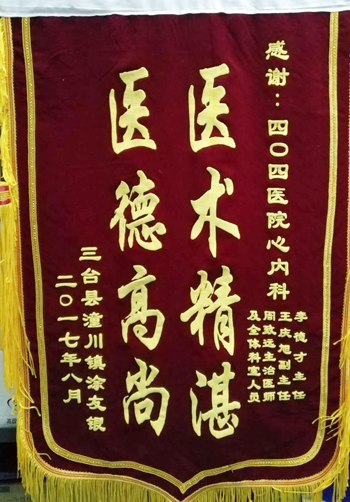 感谢：四〇四医院心内科
李德才主任
王庆旭副主任
周致远主治医师
及全体科室人员
医术精湛
医德高尚
三台县潼川镇涂友银
二〇一七年八月